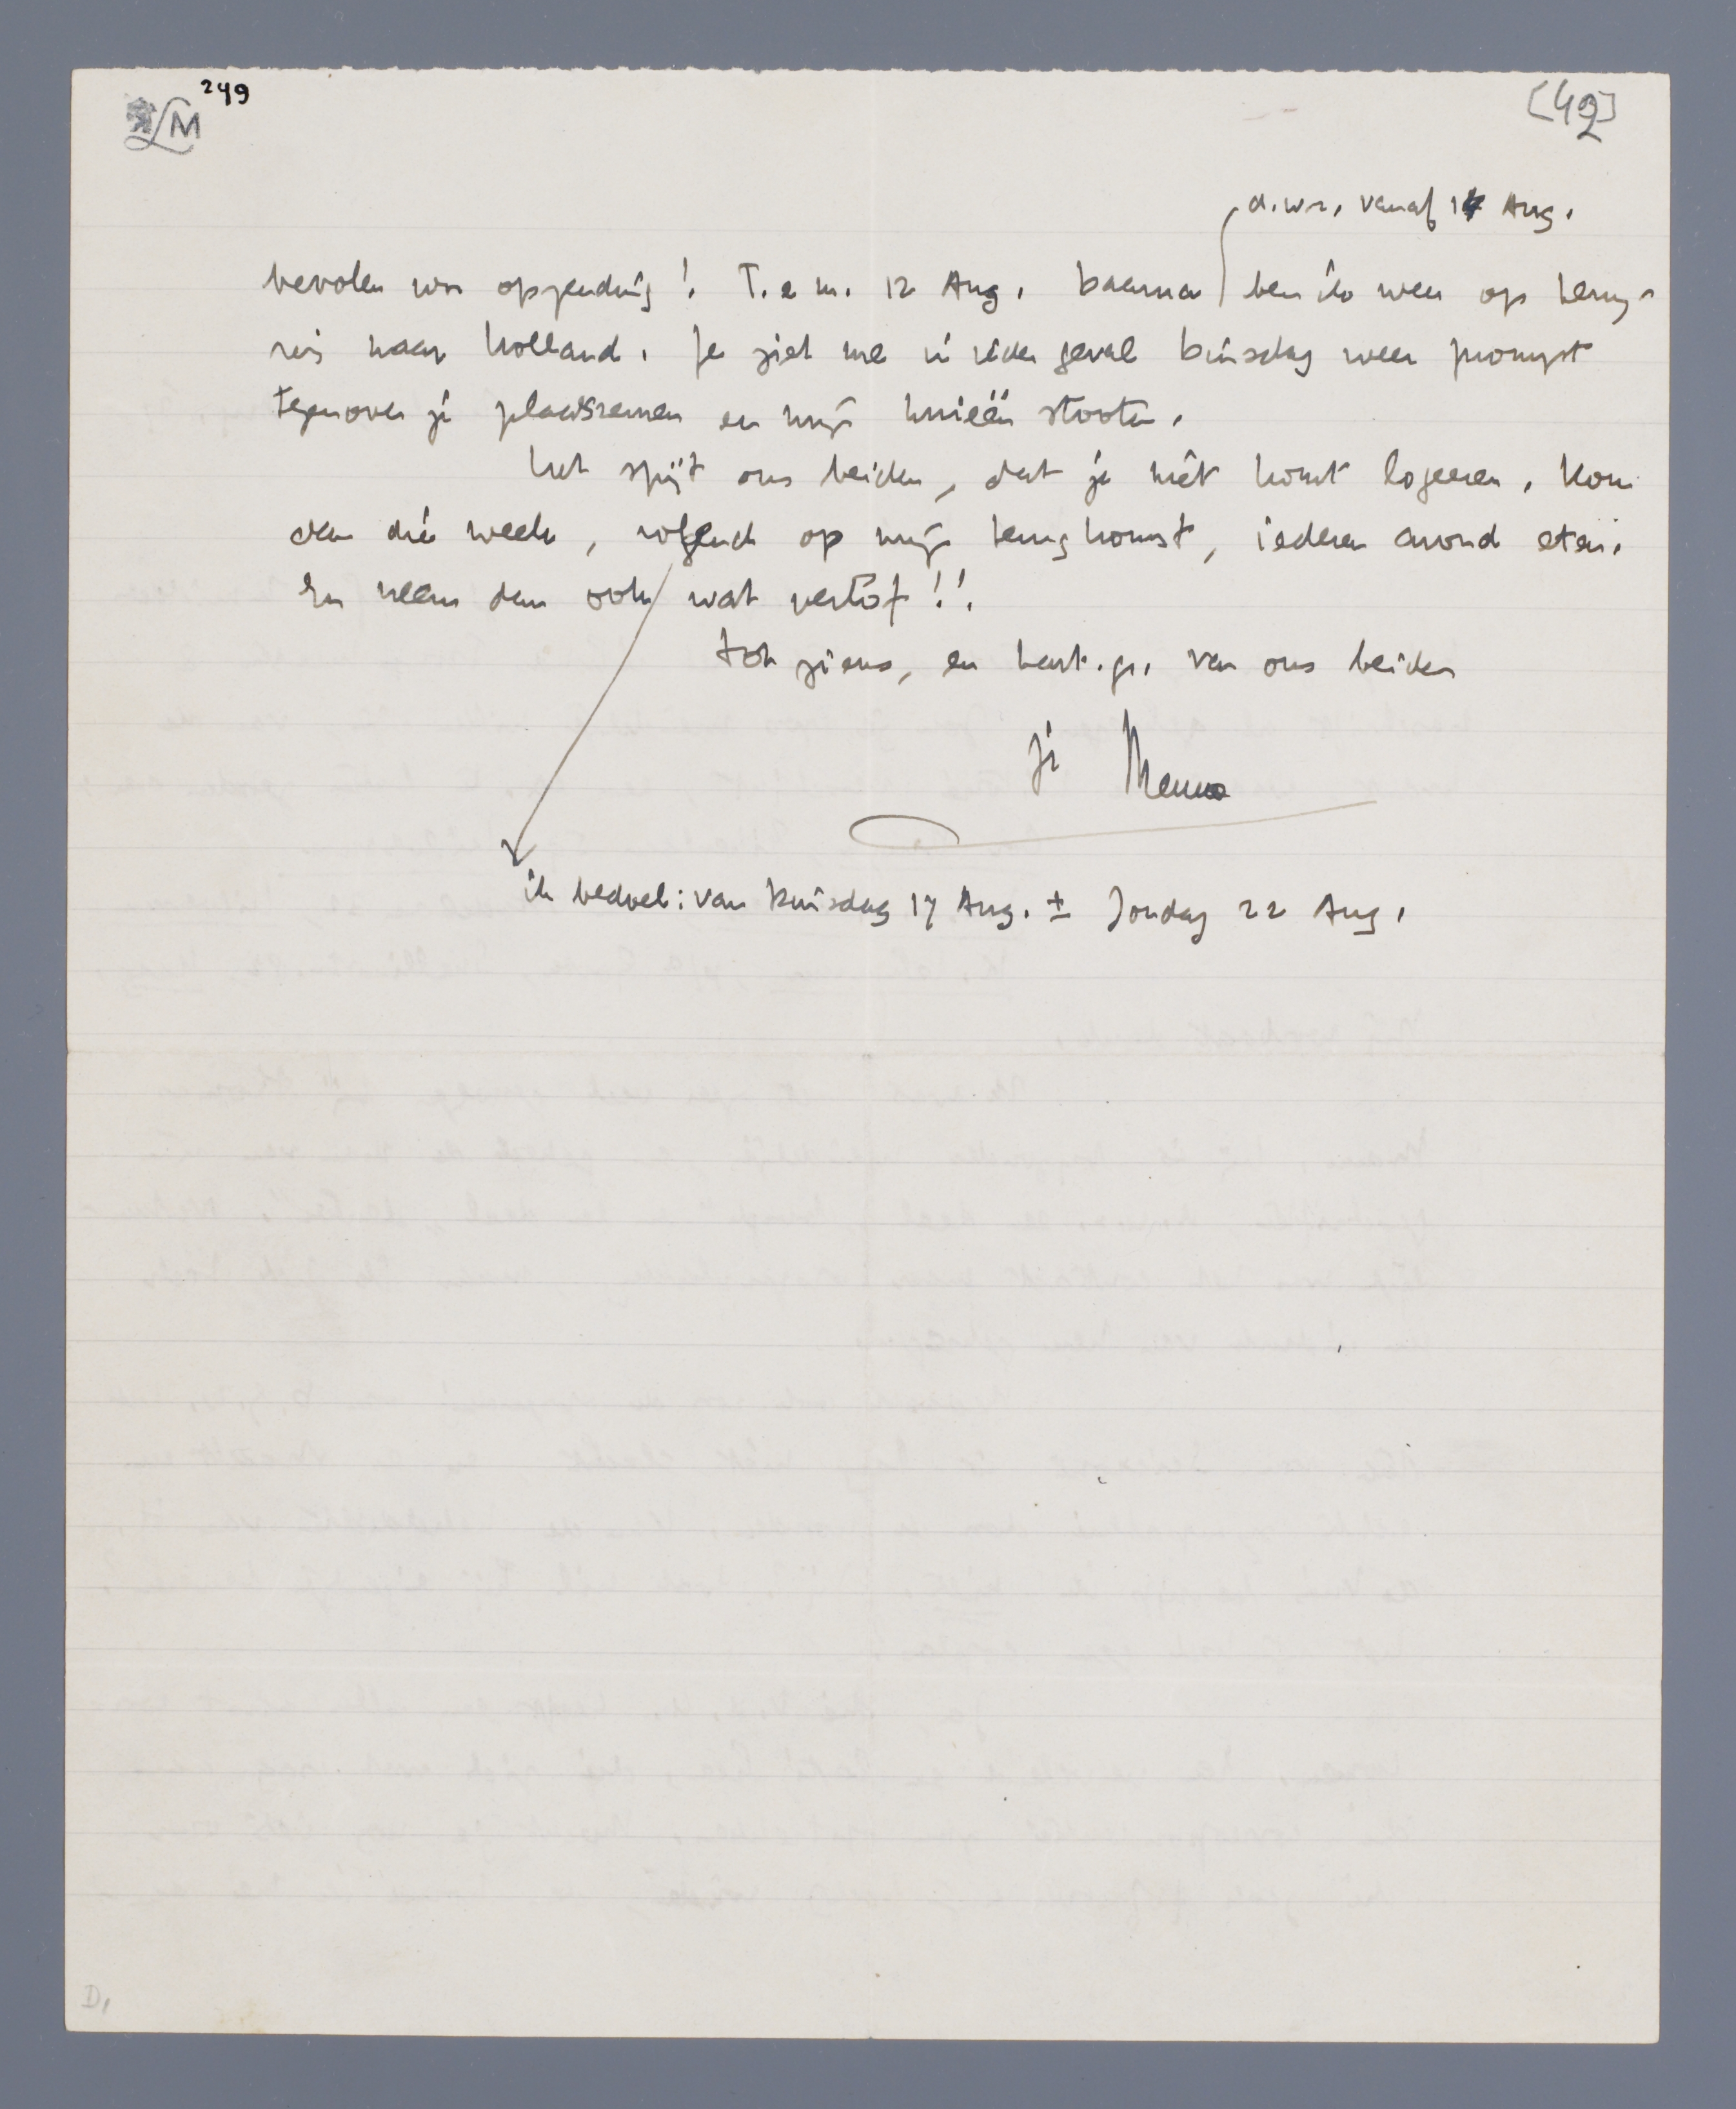 249
LM
[42]
d.w.z. vanaf 14 Aug.
bevolen voor opzending! T.e.m. 12 Aug. Daarna ben ik weer op terug-
reis naar Holland. Je ziet me in ieder geval Dinsdag weer prompt
tegenover je plaatsnemen en mijn knieën stooten.
Het spijt ons beiden, dat je niet komt logeeren. Kom
dan die week, volgend op mijn terugkomst, iederen avond eten.
En neem dan ook wat verlof!!
Tot ziens, en hart. gr. van ons beiden
je Menno
ik bedoel: van Dinsdag 17 Aug. ± Zondag 22 Aug.
D,